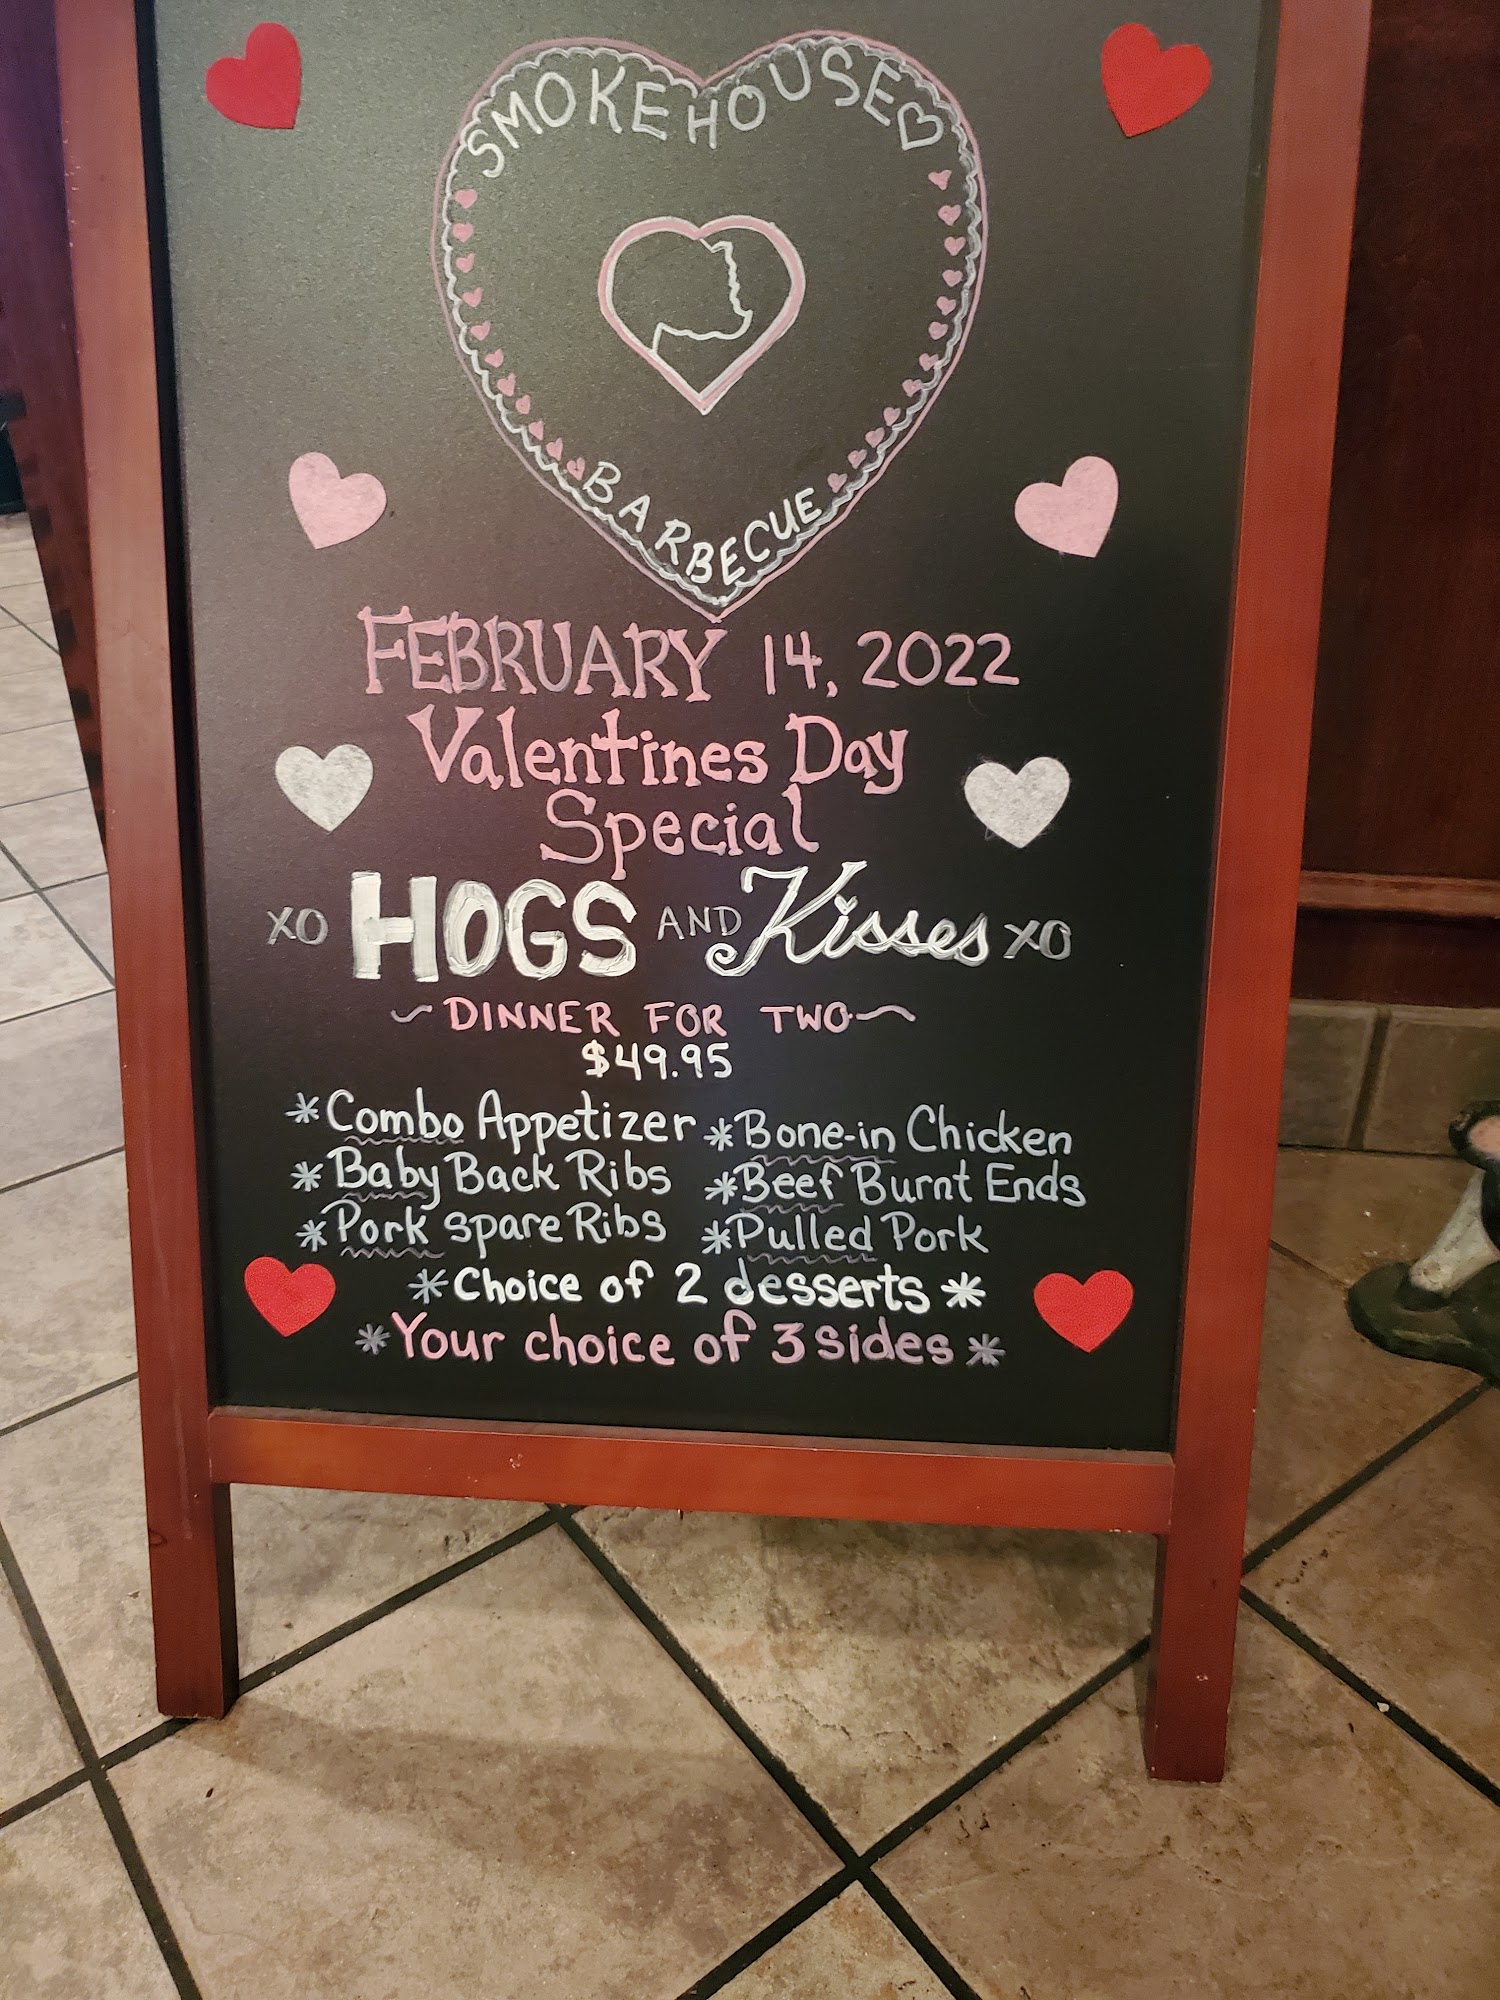 SMOKEHOUSE
BARBECUE
FEBRUARY 14, 2022
Valentines Day
Special
XO HOGS AND Kisses XO
~ DINNER FOR TWO ~
$49.95
*Combo Appetizer *Bone-in Chicken
*Baby Back Ribs *Beef Burnt Ends
*Pork spare Ribs *Pulled Pork
*Choice of 2 desserts*
*Your choice of 3 sides*